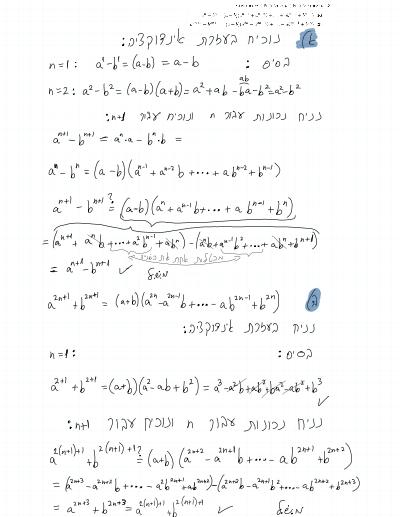 א) נוכיח בעזרת אינדוקציה:
n=1: a¹-b¹=(a-b)=a-b בסיס:
n=2: a²-b²=(a-b)(a+b)=a²+ab-ba-b²=a²-b²
נניח נכונות עבור n ונוכיח עבור n+1:
aⁿ⁺¹-bⁿ⁺¹=aⁿ·a-bⁿ·b=
aⁿ-bⁿ=(a-b)(aⁿ⁻¹+aⁿ⁻²b+⋯+abⁿ⁻²+bⁿ⁻¹)
aⁿ⁺¹-bⁿ⁺¹ ?= (a-b)(aⁿ+aⁿ⁻¹b+⋯+abⁿ⁻¹+bⁿ)
=(aⁿ⁺¹+aⁿb+⋯+a²bⁿ⁻¹+abⁿ)-(aⁿb+aⁿ⁻¹b²+⋯+abⁿ+bⁿ⁺¹)
=aⁿ⁺¹-bⁿ⁺¹ ✓ משל
ב) a²ⁿ⁺¹+b²ⁿ⁺¹=(a+b)(a²ⁿ-a²ⁿ⁻¹b+⋯-ab²ⁿ⁻¹+b²ⁿ)
נניח בעזרת אינדוקציה:
n=1: בסיס:
a²⁺¹+b²⁺¹=(a+b)(a²-ab+b²)=a³-a²b+ab²+ba²-ab²+b³ ✓
נניח נכונות עבור n ונוכיח עבור n+1:
a²⁽ⁿ⁺¹⁾⁺¹+b²⁽ⁿ⁺¹⁾⁺¹ ?= (a+b)(a²ⁿ⁺²-a²ⁿ⁺¹b+⋯-ab²ⁿ⁺¹+b²ⁿ⁺²)
=(a²ⁿ⁺³-a²ⁿ⁺²b+⋯-a²b²ⁿ⁺¹+ab²ⁿ⁺²)-(a²ⁿ⁺²b-a²ⁿ⁺¹b²+⋯-ab²ⁿ⁺²+b²ⁿ⁺³)
=a²ⁿ⁺³+b²ⁿ⁺³=a²⁽ⁿ⁺¹⁾⁺¹+b²⁽ⁿ⁺¹⁾⁺¹ ✓ משל